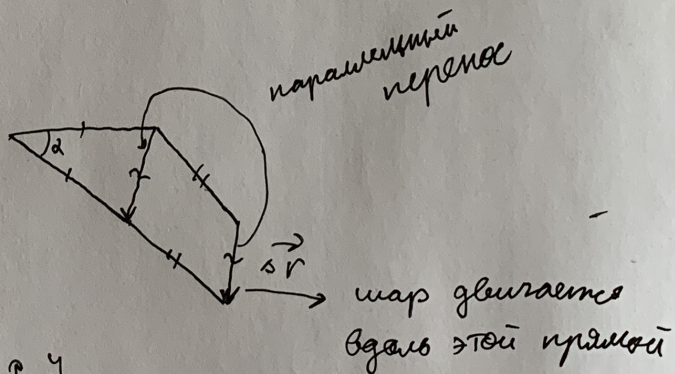 параллельный
перенос
α
s r
шар двигается
вдоль этой прямой